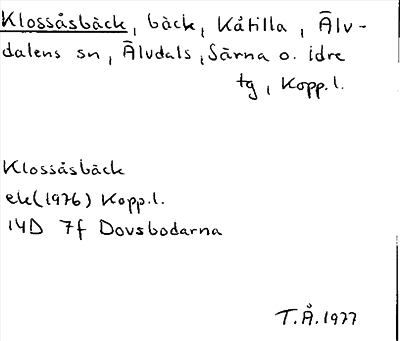 Klossåsbäck, bäck, Kåtilla, Älv-
dalens sn, Älvdals, Särna o. Idre
tg, Kopp.l.
Klossåsbäck
ek(1976) Kopp.l.
14D 7f Dovsbodarna
T.Å.1977